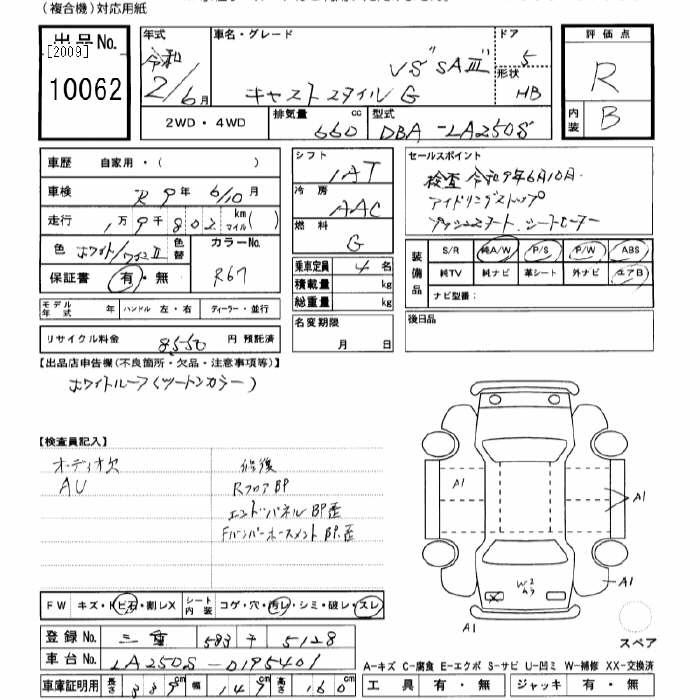 (複合機)対応用紙
出品No.
[2009]
10062
年式
令和
2/6月
車名・グレード
VS"SAⅢ"
キャストスタイル G
ドア
5
形状
HB
評価点
R
内装
B
2WD・4WD
排気量
660 cc
型式
DBA-LA250S
車歴 自家用・( )
車検 R9年 6/10月
走行 1万9千802 km マイル( )
色 ホワイト/ワインⅡ 色替
カラーNo.
R67
保証書 有・無
モデル年式 年 ハンドル 左・右 ディーラー・並行
リサイクル料金 8550 円 預託済
シフト
IAT
冷房
AAC
燃料
G
乗車定員 4名
積載量 kg
総重量 kg
名変期限
月 日
セールスポイント
検査 令和9年6月10日.
アイドリングストップ
プッシュスタート.シートヒーター
装備品
S/R 純A/W P/S P/W ABS
純TV 純ナビ 革シート 外ナビ エアB
ナビ型番:
後日品
【出品店申告欄(不良箇所・欠品・注意事項等)】
ホワイトルーフ(ツートンカラー)
【検査員記入】
オーディオ欠
AU
修復
Rフロア BP
エンドパネル BP歪
Fバンパーホースメント BP.歪
A1
A1
W2
A3
A1
A1
スペア
FW キズ・トビ石・割レX
シート内装 コゲ・穴・汚レ・シミ・破レ・スレ
登録No. 三重 583 チ 5128
車台No. LA250S-0195401
車庫証明用 長さ 339cm 幅 149cm 高さ 160cm
A-キズ C-腐食 E-エクボ S-サビ U-凹ミ W-補修 XX-交換済
工具 有・無 ジャッキ 有・無